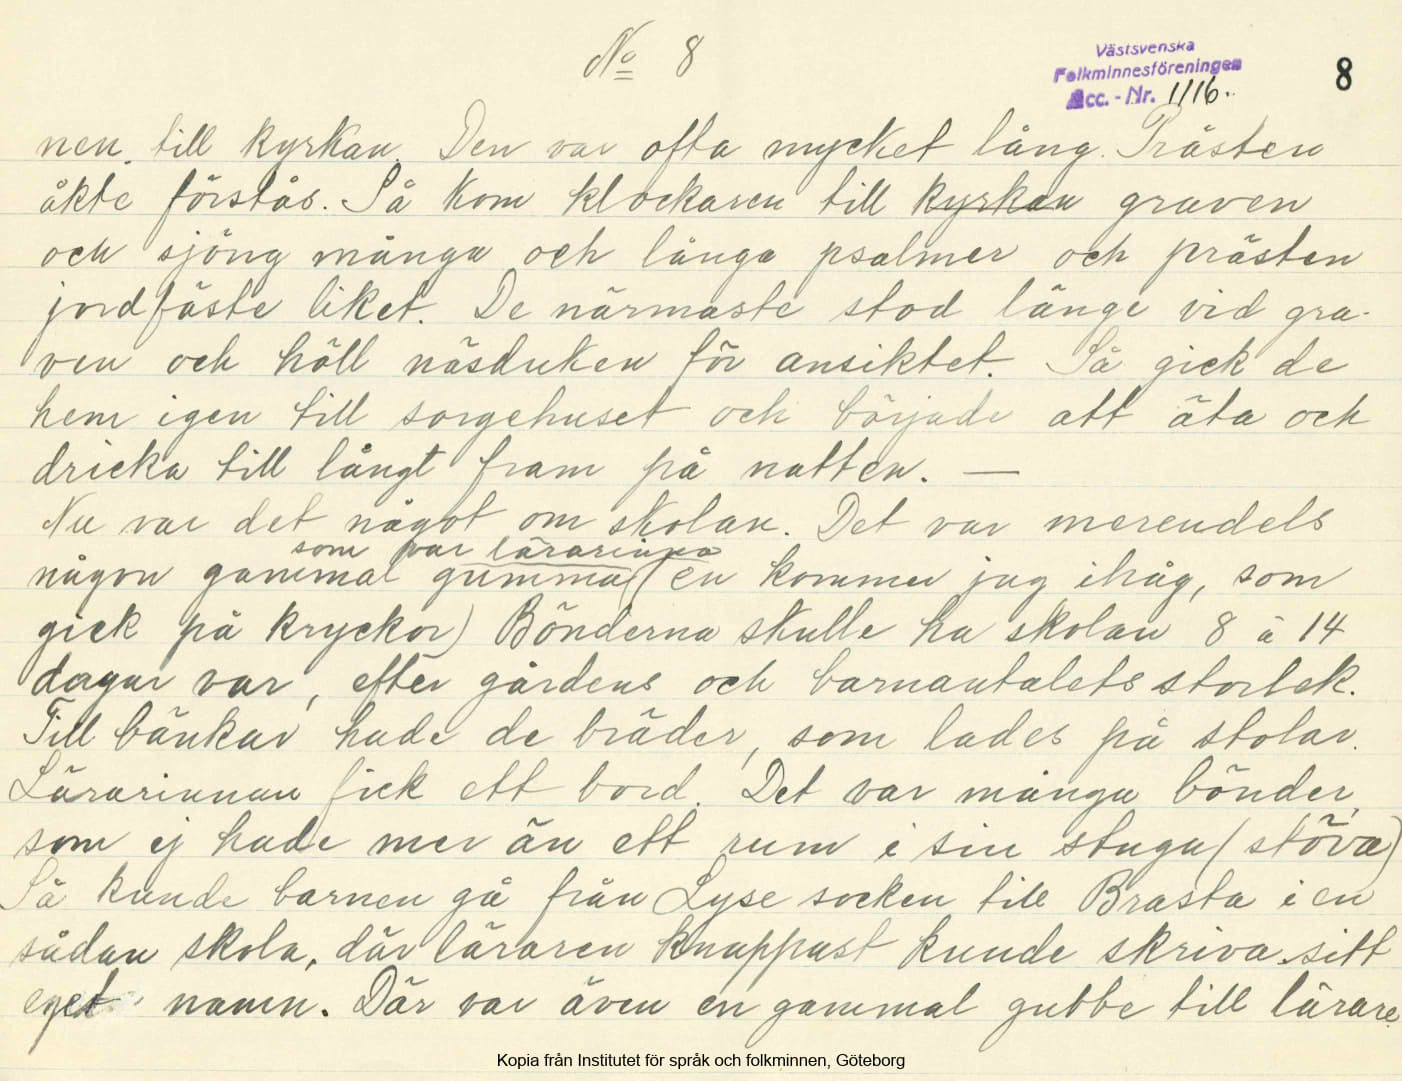 No 8
Västsvenska
Folkminnesföreningen
Acc. - Nr. 1116.
8
nen. till kyrkan. Den var ofta mycket lång. Prästen
åkte förstås. Så kom klockaren till kyrkan graven
och sjöng många och långa psalmer och prästen
jordfäste liket. De närmaste stod länge vid gra-
ven och höll näsduken för ansiktet. Så gick de
hem igen till sorgehuset och började att äta och
dricka till långt fram på natten. —
Nu var det något om skolan. Det var merendels
som var lärarinna
någon gammal gumma (en kommer jag ihåg, som
gick på kryckor) Bönderna skulle ha skolan 8 à 14
dagar var, efter gårdens och barnantalets storlek.
Till bänkar hade de bräder, som lades på stolar.
Lärarinnan fick ett bord. Det var många bönder,
som ej hade mer än ett rum i sin stuga (stöva)
Så kunde barnen gå från Lyse socken till Brasta i en
sådan skola, där läraren knappast kunde skriva sitt
eget namn. Där var även en gammal gubbe till lärare.
Kopia från Institutet för språk och folkminnen, Göteborg